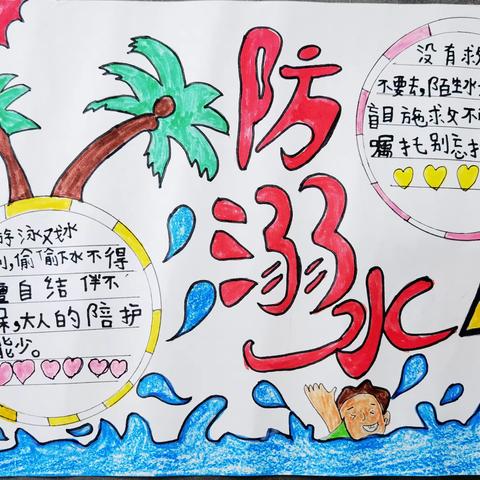 防
溺
水
没有救
不要去,陌生水
盲目施救不
嘱托别忘
游泳又妙
,偷偷下水不得
擅自结伴不
,大人的陪护
能少。